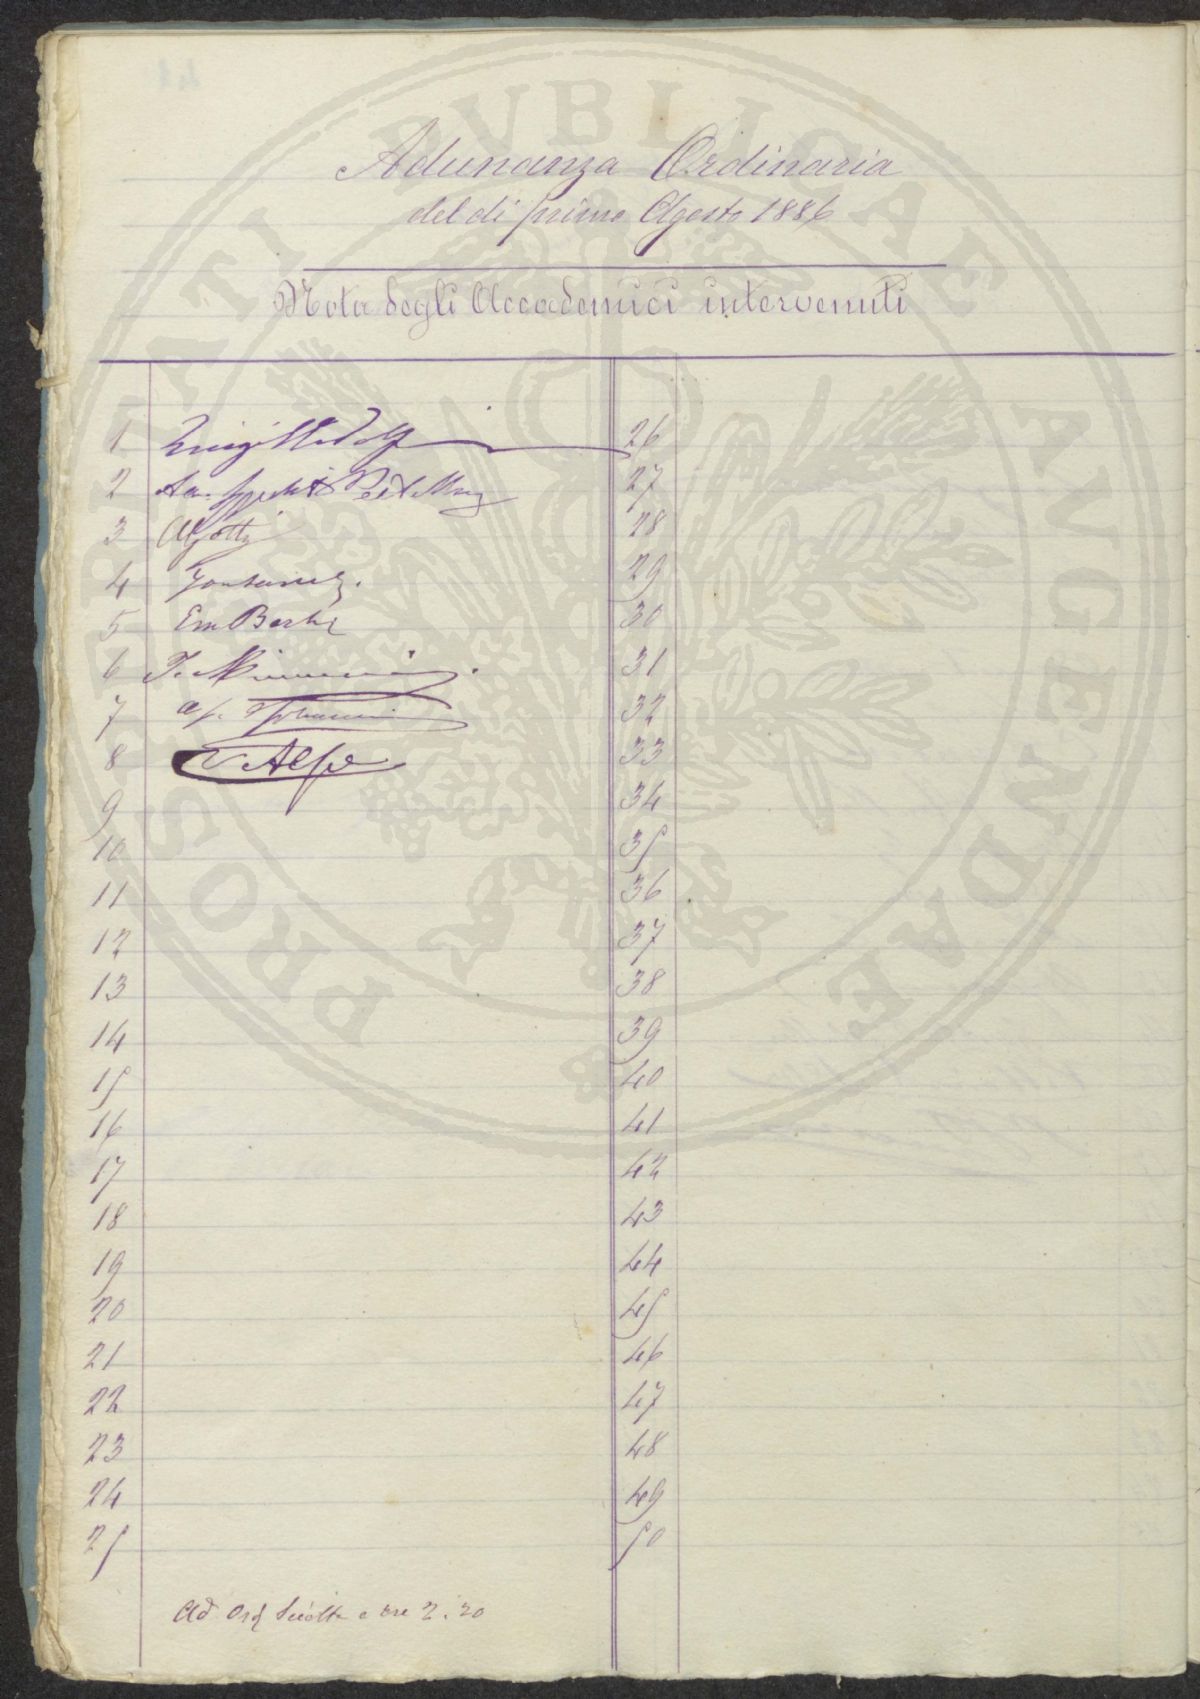 Adunanza Ordinaria
del di primo Agosto 1886
Nota degli Accademici intervenuti
PROSPERITATI PVBLICAE AVGENDAE
1 Luigi
2
3
4
5 Em Bechi
6
7
8 V Alpe
9
10
11
12
13
14
15
16
17
18
19
20
21
22
23
24
25
26
27
28
29
30
31
32
33
34
35
36
37
38
39
40
41
42
43
44
45
46
47
48
49
50
Ad. Ord Sciolta a ore 2.20